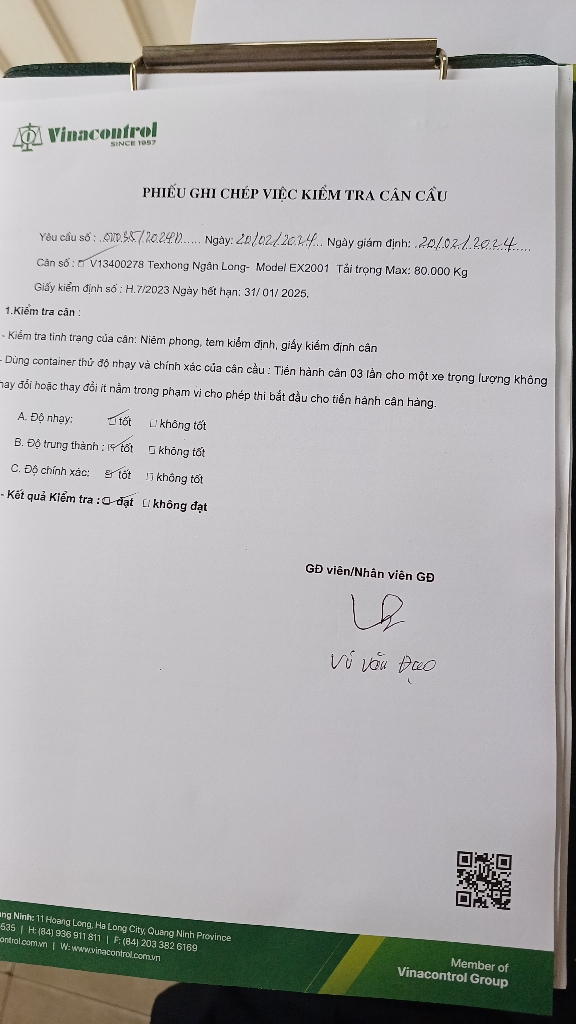 Vinacontrol
SINCE 1957
PHIẾU GHI CHÉP VIỆC KIỂM TRA CÂN CẦU
Yêu cầu số : Ngày: 20/02/2024... Ngày giám định: .20/02/2024.....
Cân số : V13400278 Texhong Ngân Long- Model EX2001 Tải trọng Max: 80.000 Kg
Giấy kiểm định số : H.7/2023 Ngày hết hạn: 31/ 01/ 2025.
1.Kiểm tra cân :
- Kiểm tra tình trạng của cân: Niêm phong, tem kiểm định, giấy kiểm định cân
- Dùng container thử độ nhạy và chính xác của cân cầu : Tiến hành cân 03 lần cho một xe trọng lượng không
hay đổi hoặc thay đổi ít nằm trong phạm vi cho phép thì bắt đầu cho tiến hành cân hàng.
A. Độ nhạy: tốt không tốt
B. Độ trung thành : tốt không tốt
C. Độ chính xác: tốt không tốt
- Kết quả Kiểm tra : đạt không đạt
GĐ viên/Nhân viên GĐ
Vũ Văn Đạo
ng Ninh: 11 Hoang Long, Ha Long City, Quang Ninh Province
535 | H: (84) 936 911 811 | F: (84) 203 382 6169
ontrol.com.vn | W: www.vinacontrol.com.vn
Member of
Vinacontrol Group